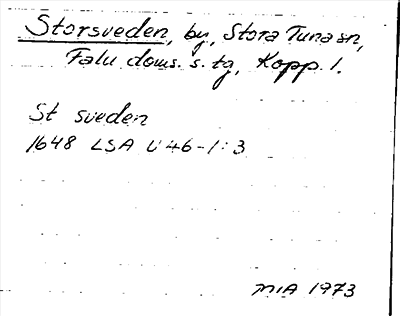 Storsveden, by, Stora Tuna sn,
Falu doms. s. tg, Kopp. l.
St sveden
1648 LSA U 46-1:3
MIA 1973